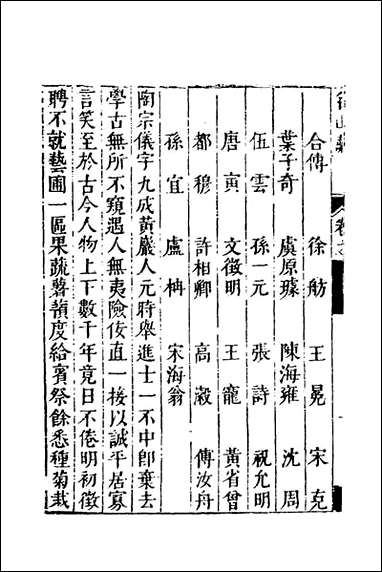 合傳　徐舫　王冕　宋克
葉子奇　虞原璩　陳海雍　沈周
伍雲　孫一元　張詩　祝允明
唐寅　文徵明　王寵　黃省曾
都穆　許相卿　高瀔　傅汝舟
孫宜　盧柟　宋海翁
陶宗儀字九成黃巖人元時舉進士一不中卽棄去
學古無所不窺遇人無夷險佞直一接以誠平居寡
言笑至於古今人物上下數千年竟日不倦明初徵
聘不就藝圃一區果蔬薯蕷度給賓祭餘悉種菊栽